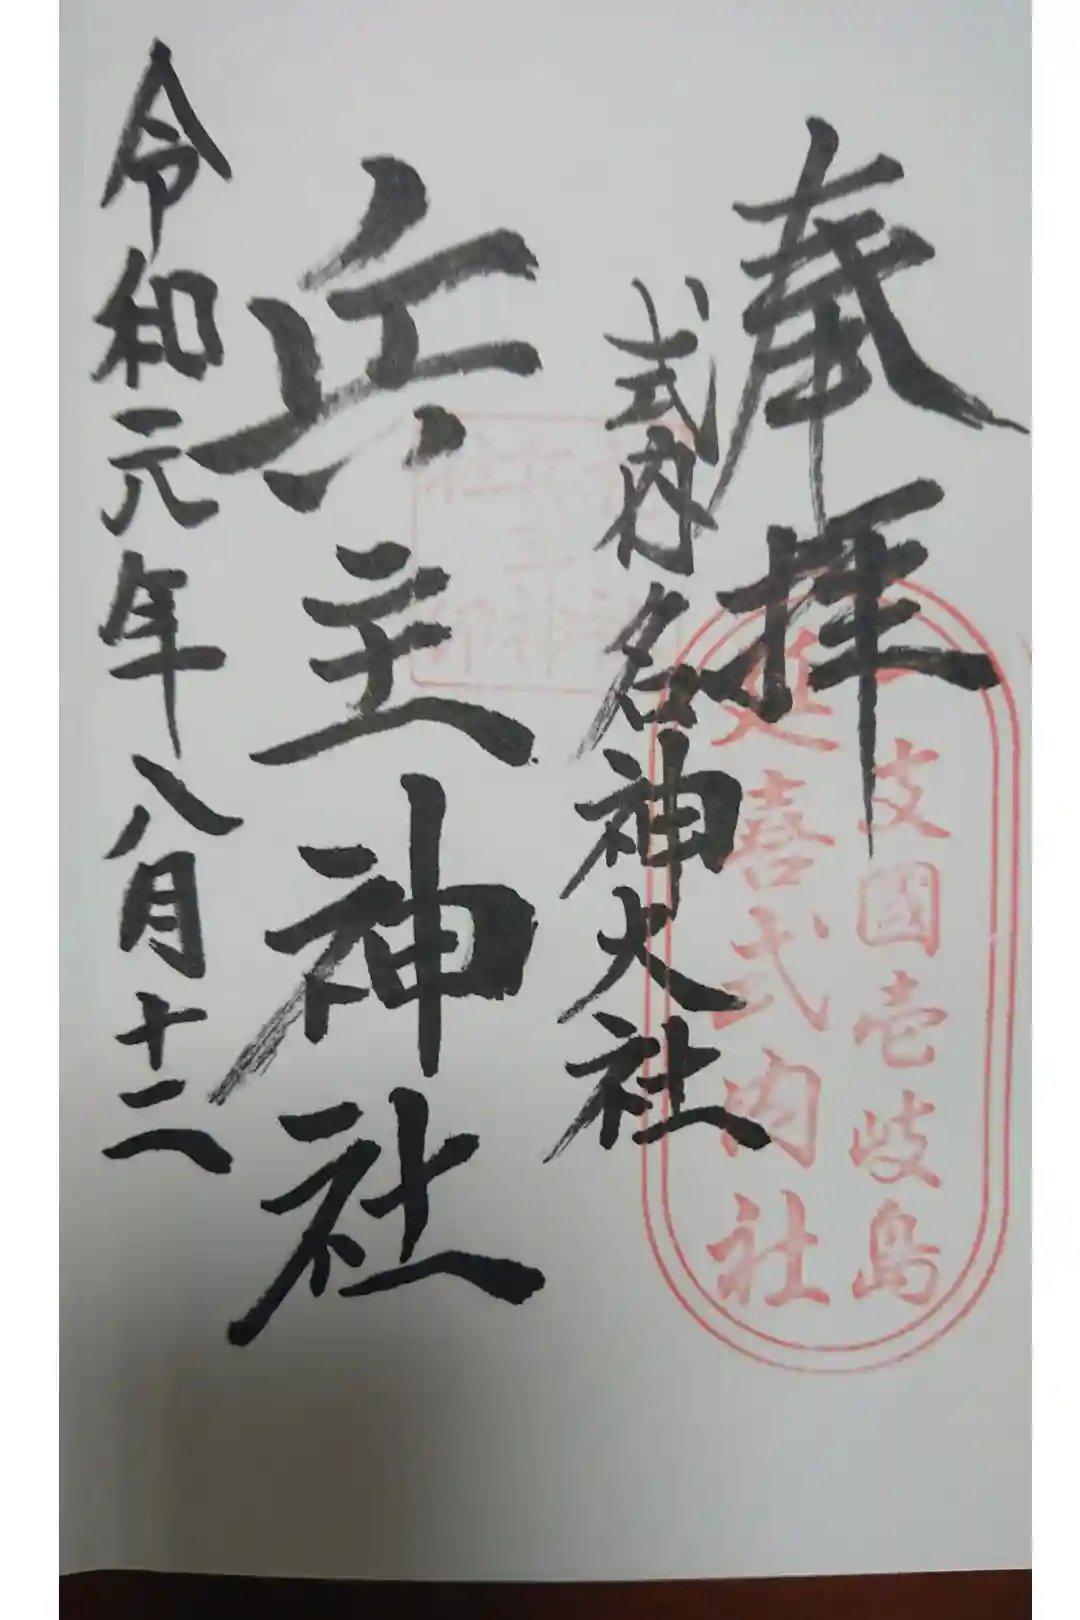 奉拝
支國壱岐島
延喜式内社
式内名神大社
兵主神社
令和元年八月十二